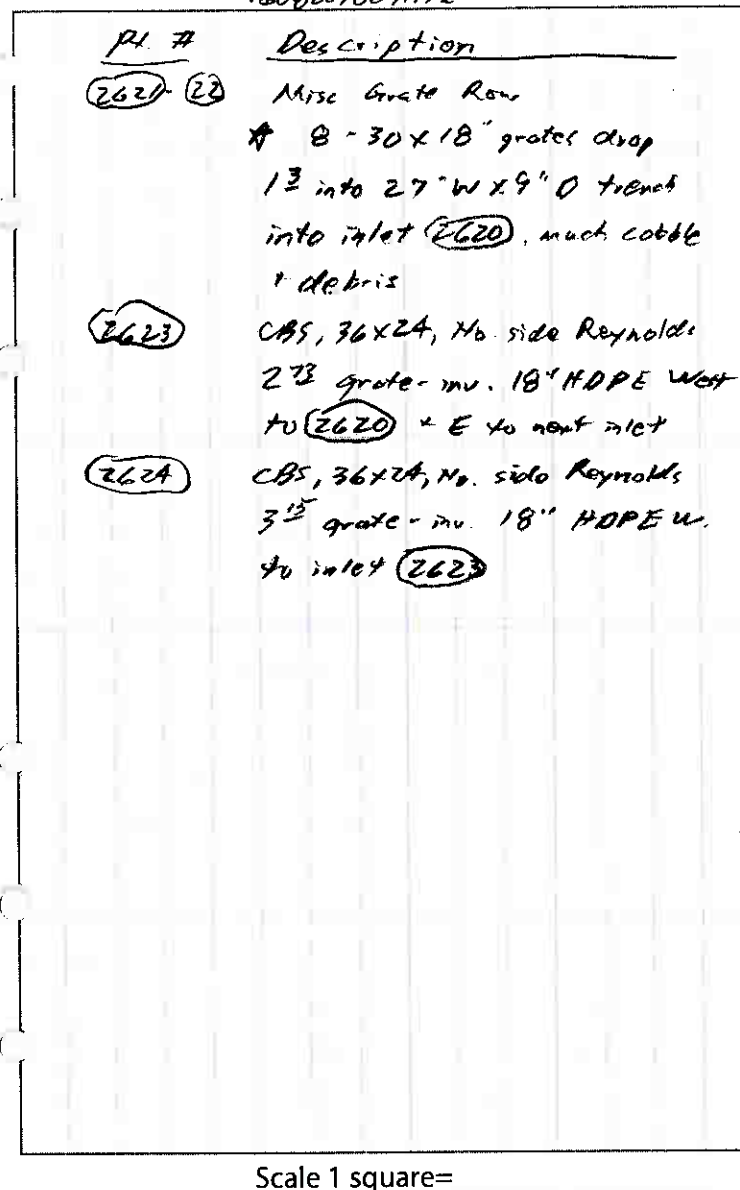 Pt. # Description
2621 - 22 Misc Grate Row
* 8 - 30 x 18" grates drop
1 3 into 27" W x 9" D trench
into inlet 2620, much cobble
+ debris
2623 CBS, 36x24, No. side Reynolds
2 73 grate - inv. 18" HDPE West
to 2620 + E to next inlet
2624 CBS, 36x24, No. side Reynolds
3 15 grate - inv. 18" HDPE W.
to inlet 2623
Scale 1 square=